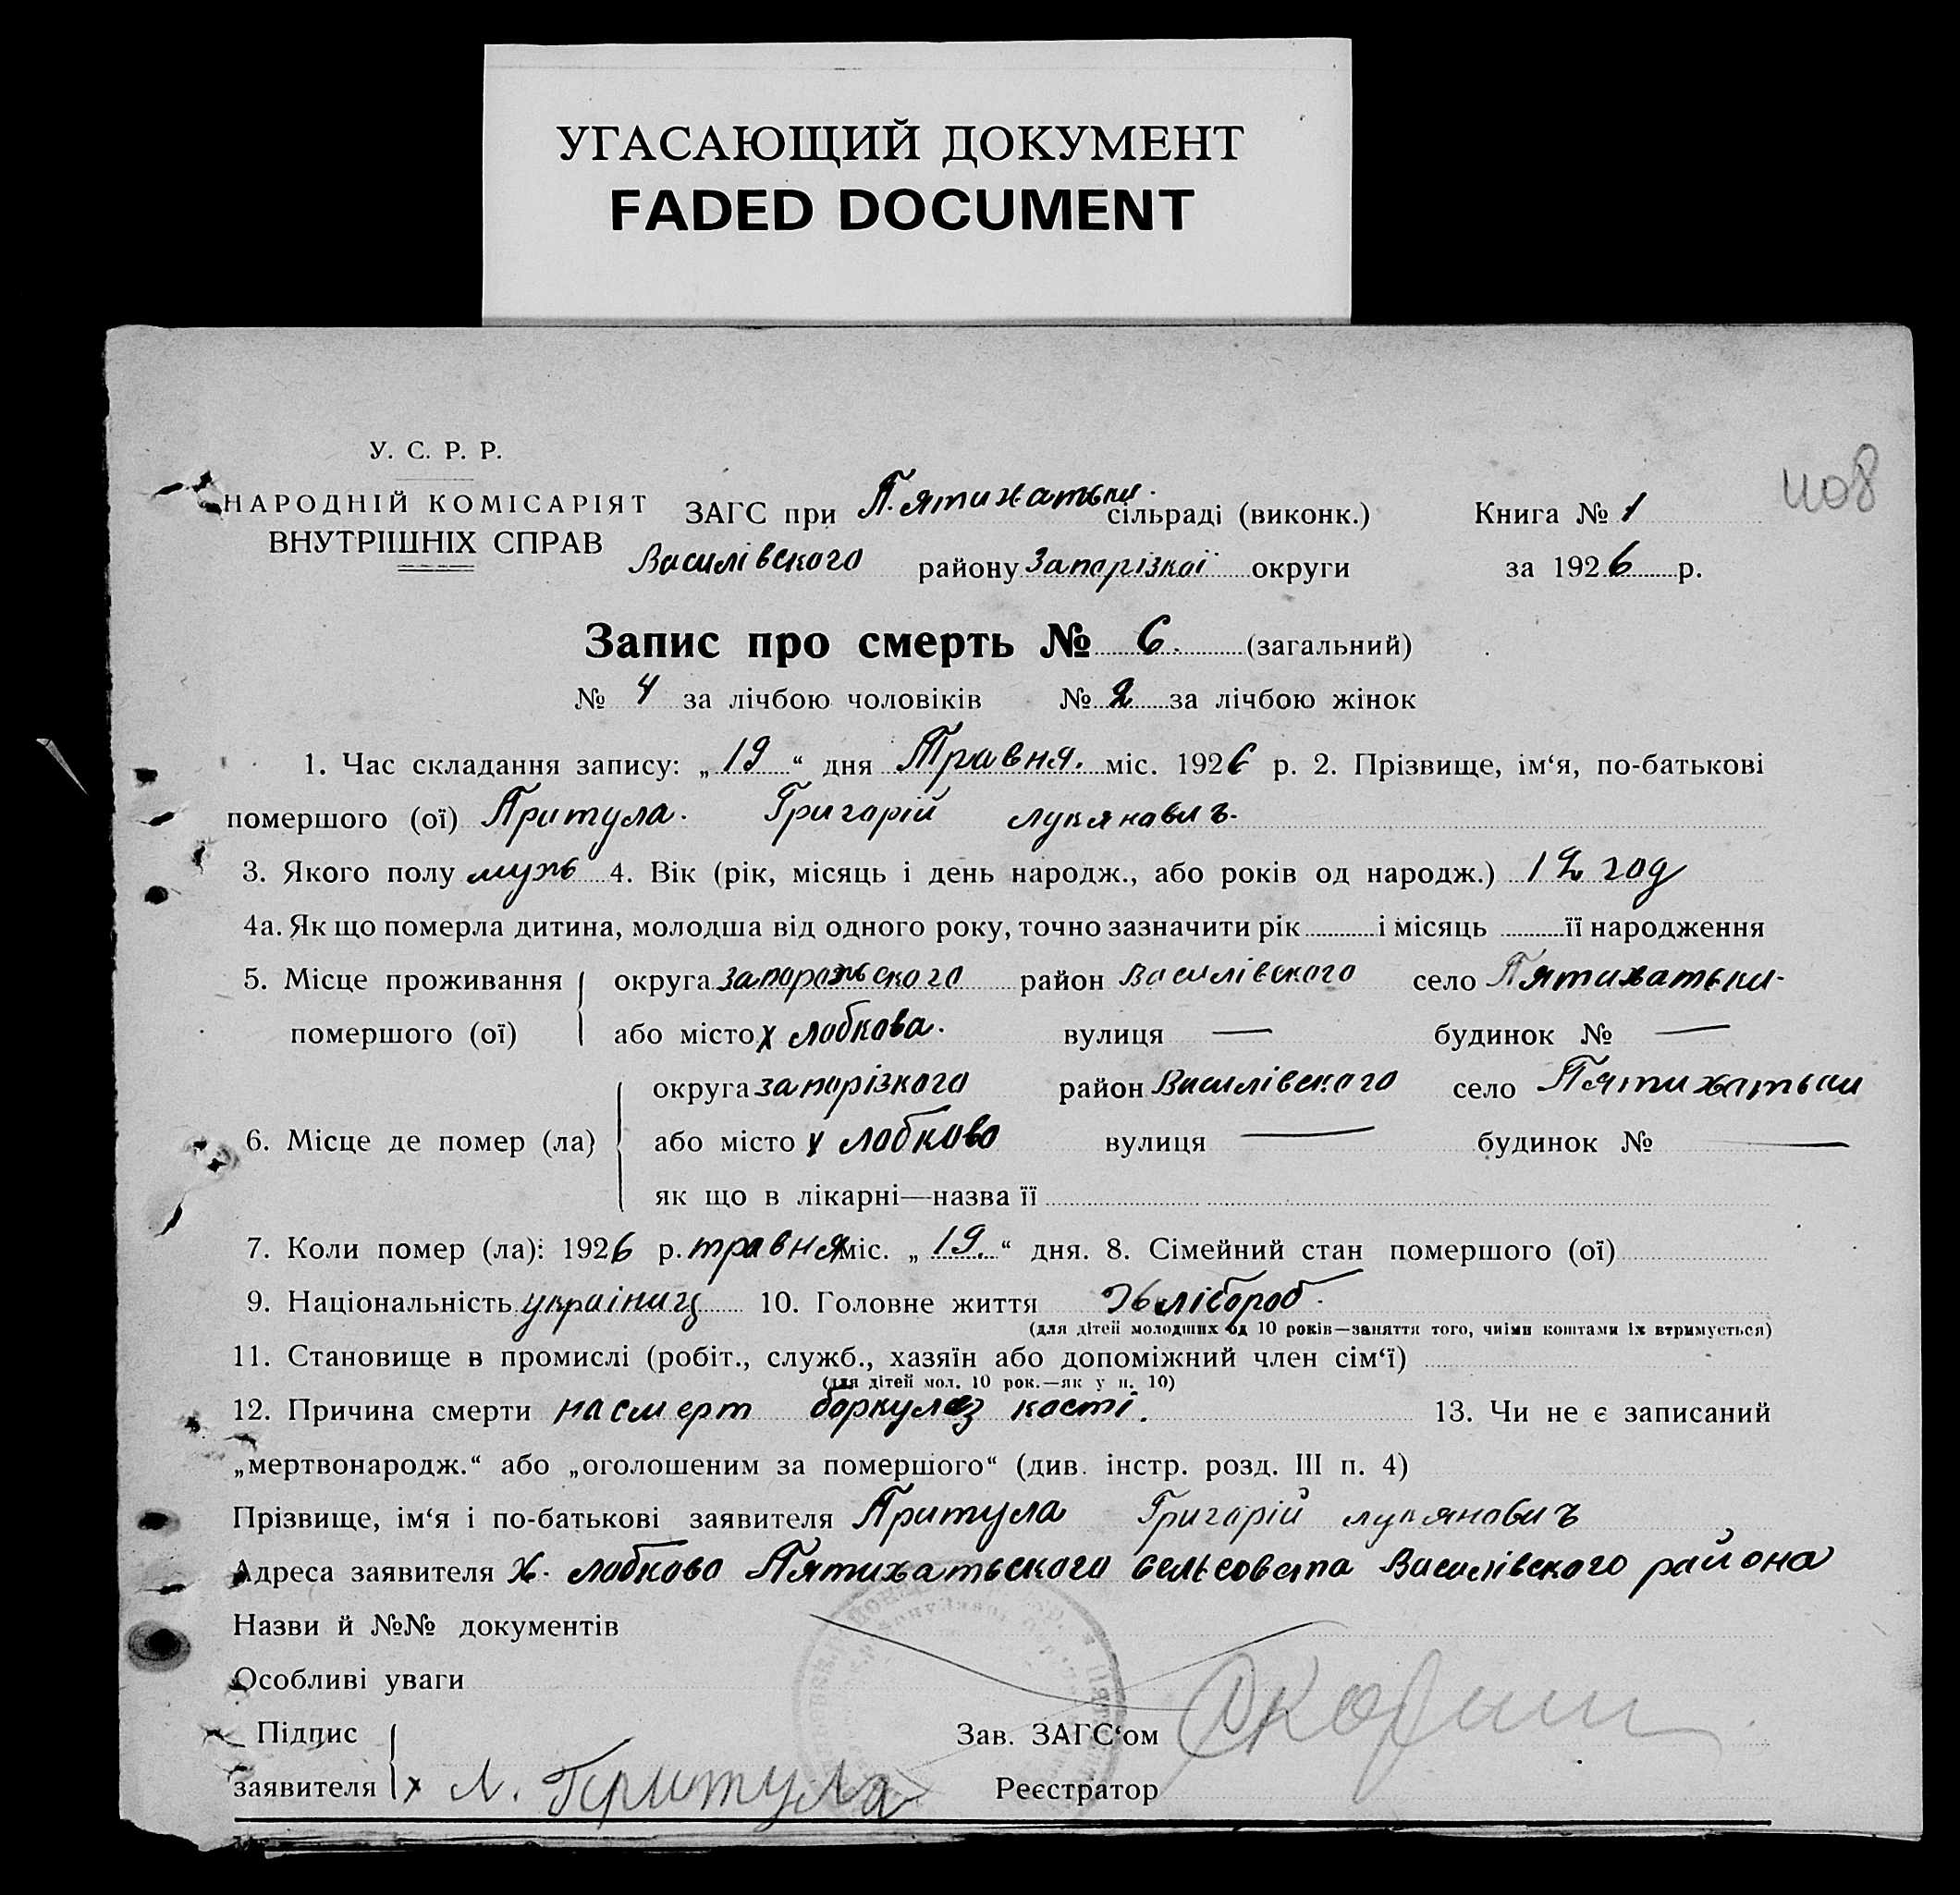 УГАСАЮЩИЙ ДОКУМЕНТ
FADED DOCUMENT
1108
У. С. Р. Р.
НАРОДНІЙ КОМІСАРІЯТ
ВНУТРІШНІХ СПРАВ
ЗАГС при П.ятихатьки. сільраді (виконк.) Книга № 1
Василівского району Запорізкої округи за 1926 р.
Запис про смерть № 6. (загальний)
№ 4 за лічбою чоловіків № 2 за лічбою жінок
1. Час складання запису: „19“ дня Травня. міс. 1926 р. 2. Прізвище, ім‘я, по-батькові
помершого (ої) Притула. Григорій лукяновичъ.
3. Якого полу мужь 4. Вік (рік, місяць і день народж., або років од народж.) 12 год
4а. Як що померла дитина, молодша від одного року, точно зазначити рік і місяць її народження
5. Місце проживання округа запорожьского район Василівского село Пятихатьки-
помершого (ої) або місто х лобкова. вулиця — будинок № —
округа запорізкого район Василівского село Пятихатьки
6. Місце де помер (ла) або місто х лобково вулиця — будинок № —
як що в лікарні—назва її
7. Коли помер (ла): 1926 р. травня міс. „19.“ дня. 8. Сімейний стан помершого (ої)
9. Національність украіниц 10. Головне життя Хлібороб.
(для дітей молодших од 10 років—заняття того, чиїми коштами їх втримується)
11. Становище в промислі (робіт., служб., хазяїн або допоміжний член сім‘ї)
(для дітей мол. 10 рок.—як у п. 10)
12. Причина смерти насмерт боркулез кості. 13. Чи не є записаний
„мертвонародж.“ або „оголошеним за помершого“ (див. інстр. розд. III п. 4)
Прізвище, ім‘я і по-батькові заявителя Притула Григорій лукяновичъ
Адреса заявителя х. лобково Пятихатьского сельсовета Василівского района
Назви й №№ документів
Особливі уваги
Підпис Зав. ЗАГС‘ом
заявителя х Л. Притула Реєстратор